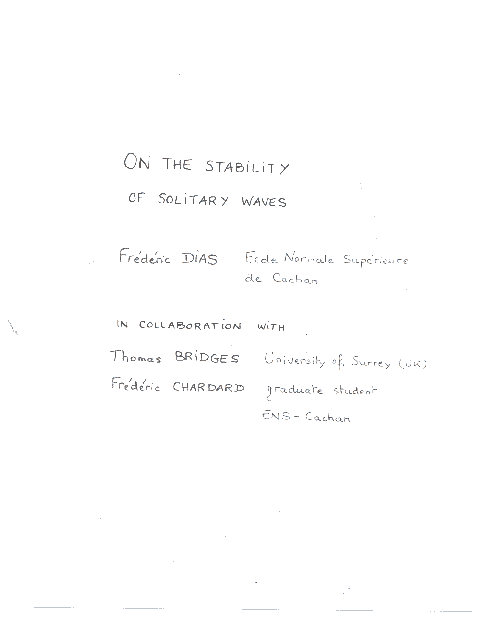 ON THE STABILITY
OF SOLITARY WAVES
Frédéric DIAS Ecole Normale Supérieure
de Cachan
IN COLLABORATION WITH
Thomas BRIDGES University of Surrey (UK)
Frédéric CHARDARD graduate student
ENS - Cachan